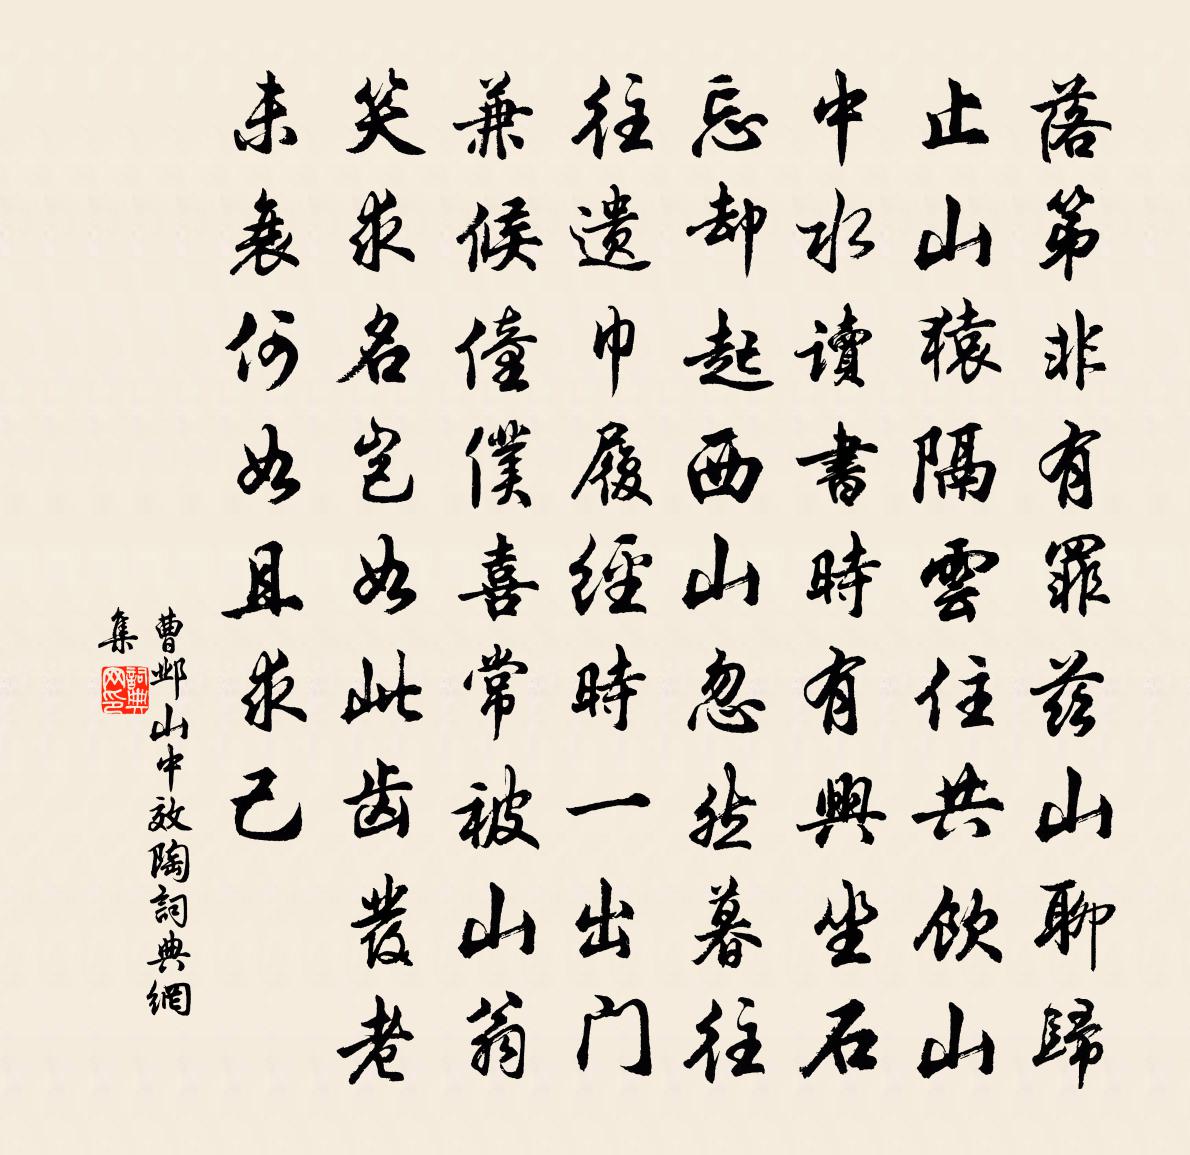 落第非有罪茲山聊歸
止山猿隔雲住共飲山
中水讀書時有興坐石
忘却起西山忽然暮往
往遺巾履經時一出門
兼候僮僕喜常被山翁
笑求名豈如此齒發老
未衰何如且求己
曹邺山中效陶詞典網
集
詞典
网印